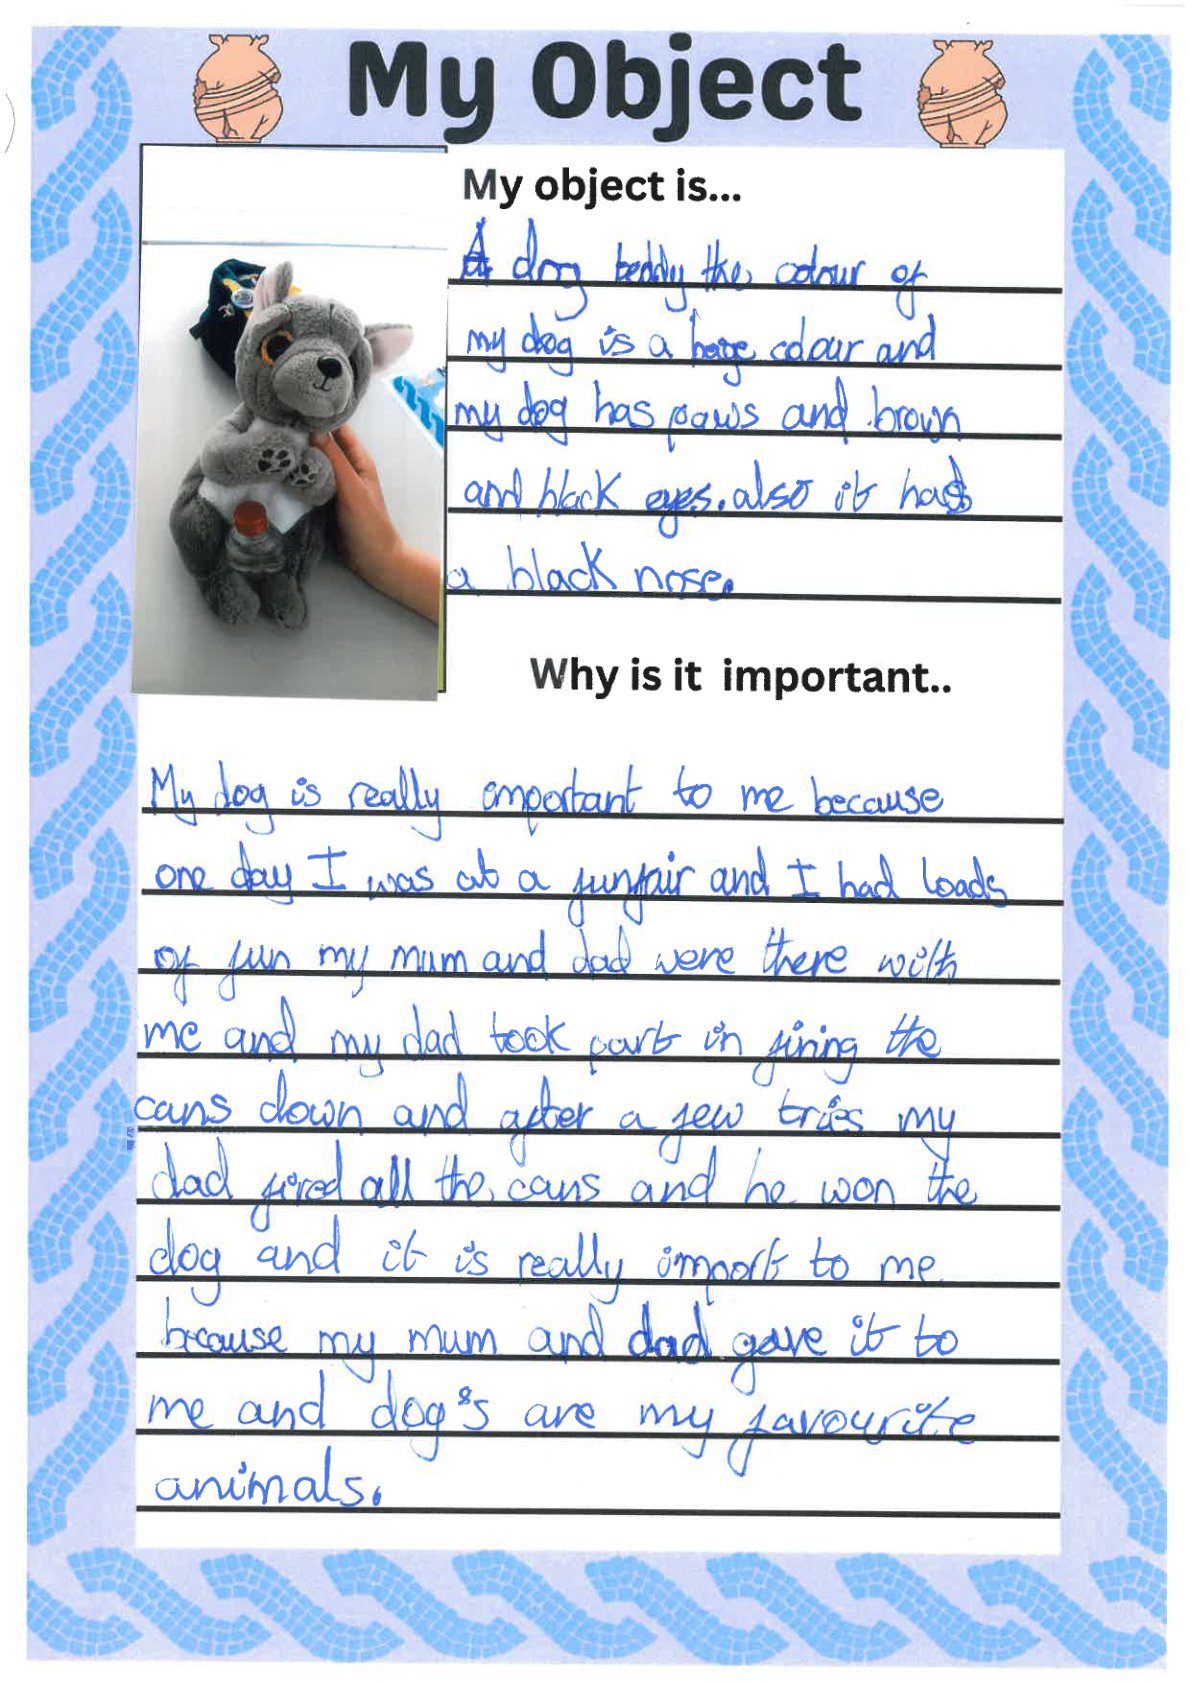 My Object
My object is...
A dog teddy the colour of
my dog is a hage colour and
my dog has paws and brown
and black eyes. also it has
a black nose.
Why is it important..
My dog is really emportant to me because
one day I was at a funfair and I had loads
of fun my mum and dad were there with
me and my dad took part in firing the
cans down and after a few tries my
dad fired all the cans and he won the
dog and it is really import to me
because my mum and dad gave it to
me and dog's are my favourite
animals.